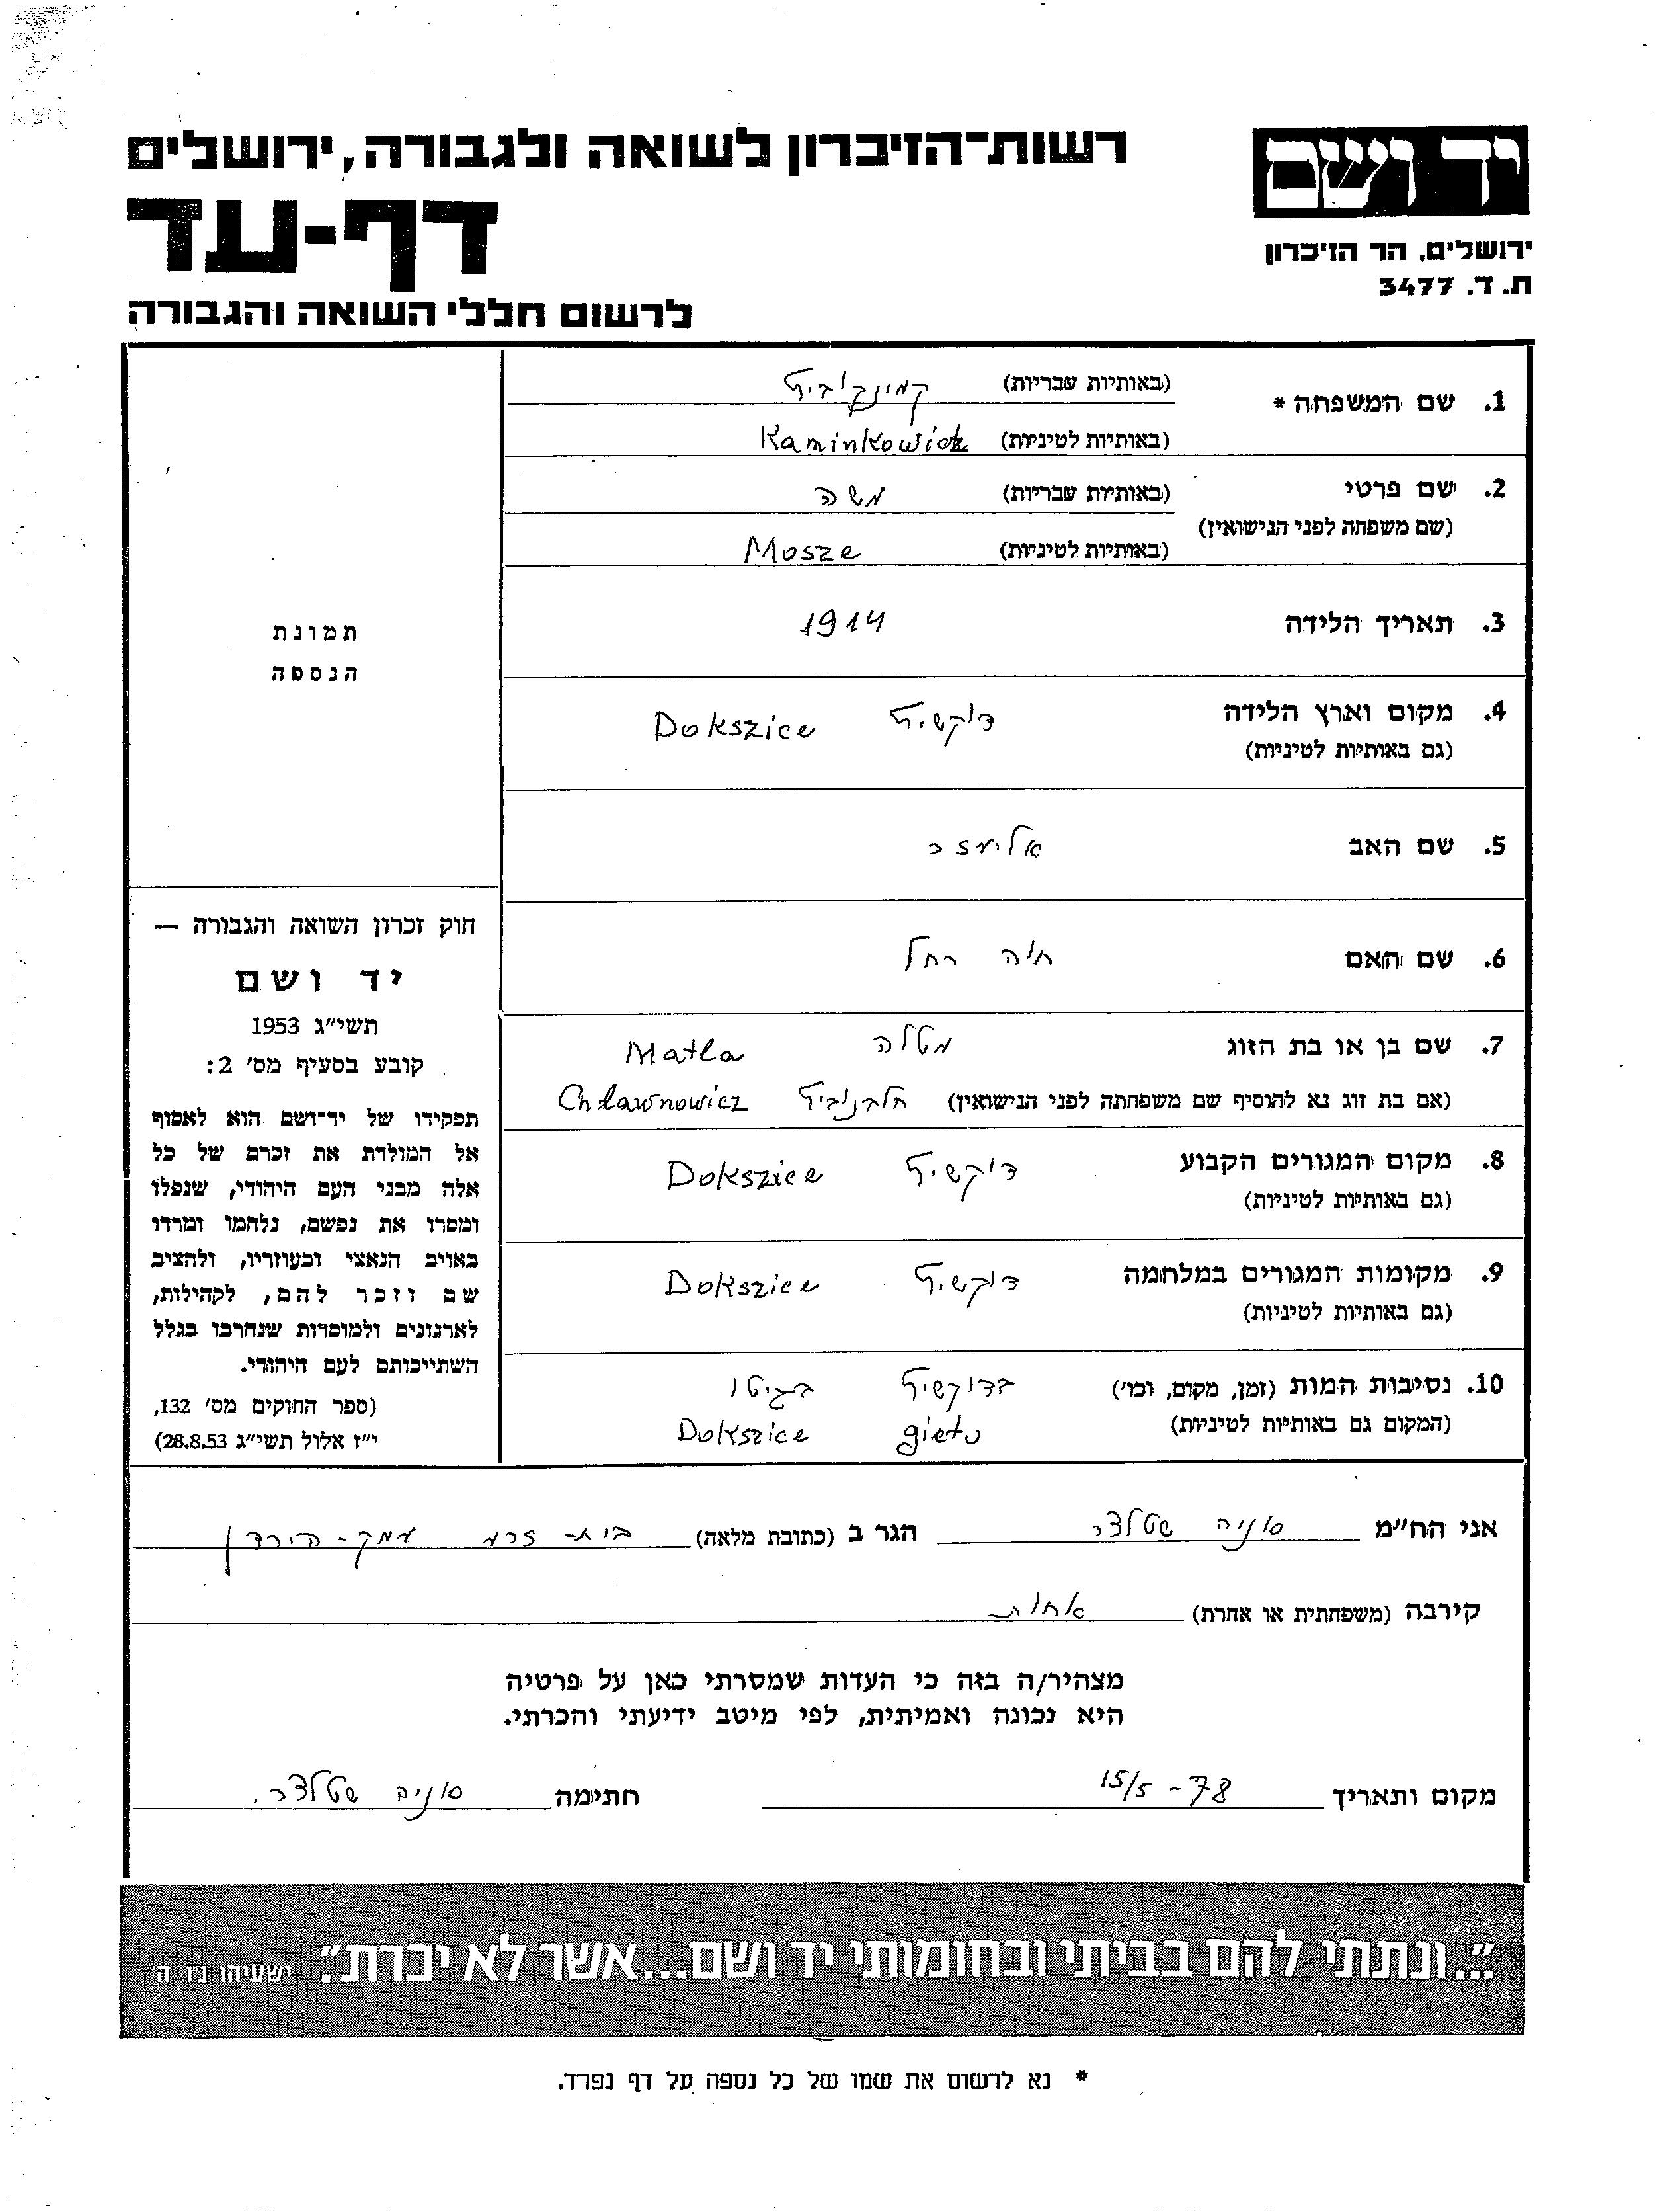 יד ושם
ירושלים, הר הזיכרון
ת. ד. 3477
רשות-הזיכרון לשואה ולגבורה, ירושלים
דף-עד
לרשום חללי השואה והגבורה
1. שם המשפחה * (באותיות עבריות) קמינקוביץ
(באותיות לטיניות) Kaminkowicz
2. שם פרטי (באותיות עבריות) משה
(שם משפחה לפני הנישואין)
(באותיות לטיניות) Mosze
3. תאריך הלידה 1914
4. מקום וארץ הלידה דוקשיץ Dokszice
(גם באותיות לטיניות)
5. שם האב אליעזר
6. שם האם חיה רחל
7. שם בן או בת הזוג מטלה Matla
(אם בת זוג נא להוסיף שם משפחתה לפני הנישואין) חלבנוביץ Chławnowicz
8. מקום המגורים הקבוע דוקשיץ Dokszice
(גם באותיות לטיניות)
9. מקומות המגורים במלחמה דוקשיץ Dokszice
(גם באותיות לטיניות)
10. נסיבות המות (זמן, מקום, וכו') בדוקשיץ בגיטו
(המקום גם באותיות לטיניות) gieto Dokszice
תמונת
הנספה
חוק זכרון השואה והגבורה —
יד ושם
תשי"ג 1953
קובע בסעיף מס' 2:
תפקידו של יד-ושם הוא לאסוף
אל המולדת את זכרם של כל
אלה מבני העם היהודי, שנפלו
ומסרו את נפשם, נלחמו ומרדו
באויב הנאצי ובעוזריו, ולהציב
שם וזכר להם, לקהילות,
לארגונים ולמוסדות שנחרבו בגלל
השתייכותם לעם היהודי.
(ספר החוקים מס' 132,
י"ז אלול תשי"ג 28.8.53)
אני הח"מ סוניה שטלצר הגר ב (כתובת מלאה) בית-זרע עמק-הירדן
קירבה (משפחתית או אחרת) אחות
מצהיר/ה בזה כי העדות שמסרתי כאן על פרטיה
היא נכונה ואמיתית, לפי מיטב ידיעתי והכרתי.
מקום ותאריך 15/5-78 חתימה סוניה שטלצר.
"...ונתתי להם בביתי ובחומותי יד ושם...אשר לא יכרת". ישעיהו נ"ו ה'
* נא לרשום את שמו של כל נספה על דף נפרד.